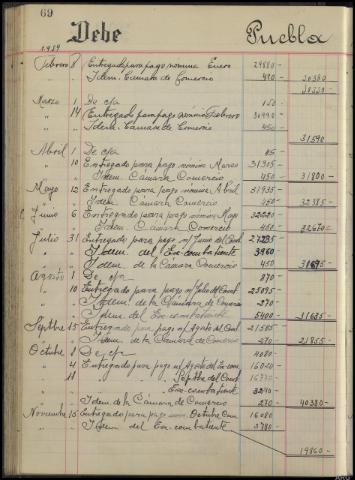 69
Debe Puebla
1939
Febrero 8 Entregado para pago nomina Enero 29880 -
" " Idem. Camara de Comercio 490 -
Marzo 1 De c/a 150 -
" 14 Entregado para pago nómina Febrero 30990 -
" " Idem. Camara de Comercio 450 - 31590
Abril 1 De c/a
" 10 Entregado para pago nómina Marzo 31305 -
" " Idem. Cámara Comercio 450 31800 -
Mayo 12 Entregado para pago nómina Abril 31935 -
" " Idem. Cámara Comercio 450 32385 -
Junio 6 Entregado para pago nómina Mayo 32220
" " Idem. Cámara Comercio 450 32670 -
Julio 31 Entregado para pago n/ Junio del Comb 27285
" " Idem del Ex-combatiente 3960
" " Idem de la Cámara Comercio 450 31695 -
Agosto 1 De c/a 870 -
" 10 Entregado para pago n/ Julio del Comb 25095
" " Idem de la Cámara de Comercio 270 -
" " Idem del Ex-combatiente 5400 31635 -
Septbre 15 Entregado para pago n/ Agosto del Comb 21585
" " Idem de la Cámara de Comercio 270 21855 -
Octubre 3 De c/a 4080 -
" 4 Entregado para pago n/ Agosto del Ex-com 16020 -
" 11 " " " Septbre del Comb
" " " " " Ex-combatiente 3240 -
" " Idem de la Cámara de Comercio 270 40380 -
Noviembre 15 Entregado para pago nom. Octubre Com 16080
" " Idem del Ex-combatiente 3780
19860 -